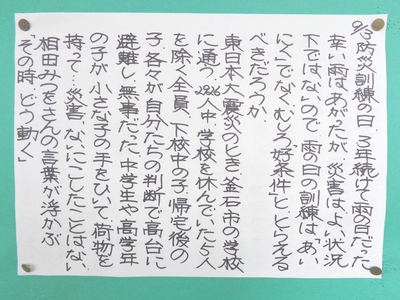 9/3防災訓練の日.3年続けて雨の日だった
幸い雨はあがったが.災害はよい状況
下ではないので.雨の日の訓練は「あい
にく」でなくむしろ「好条件」ととらえる
べきだろうか
東日本大震災のとき.釜石市の学校
に通う2926人中.学校を休んでいた5人
を除く全員、下校中の子.帰宅後の
子.各々が自分たちの判断で高台に
避難し.無事だった.中学生や高学年
の子が小さな子の手をひいて.荷物を
持って…災害.ないにこしたことはない
相田みつをさんの言葉が浮かぶ
「その時.どう動く」